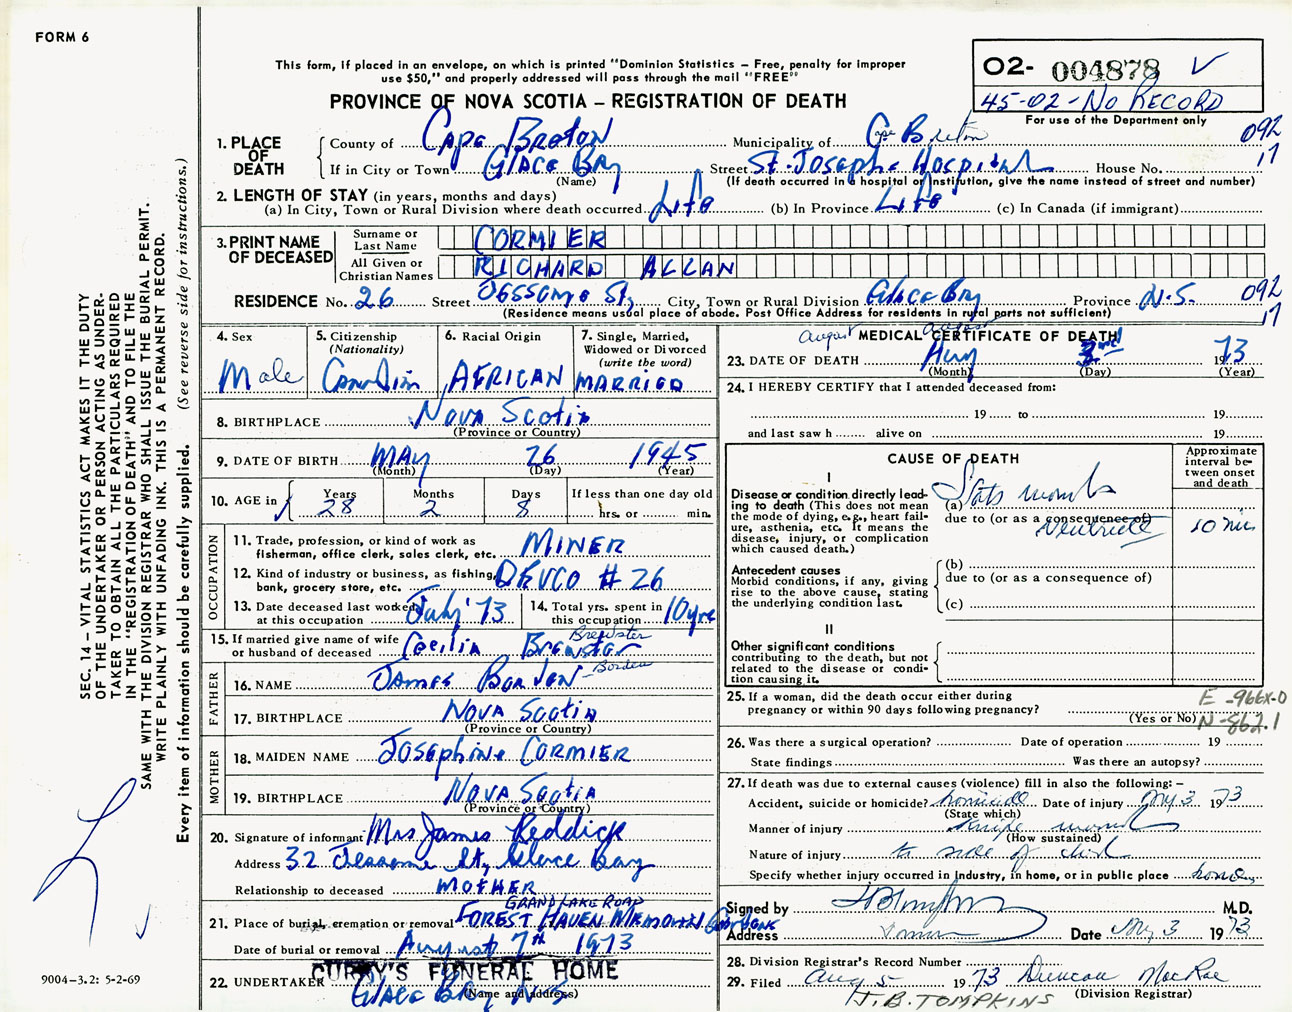 FORM 6
This form, if placed in an envelope, on which is printed "Dominion Statistics – Free, penalty for improper
use $50," and properly addressed will pass through the mail "FREE"
PROVINCE OF NOVA SCOTIA – REGISTRATION OF DEATH
O2- 004878 ✓
45-02-No RECORD
For use of the Department only
SEC. 14 – VITAL STATISTICS ACT MAKES IT THE DUTY
OF THE UNDERTAKER OR PERSON ACTING AS UNDER-
TAKER TO OBTAIN ALL THE PARTICULARS REQUIRED
IN THE "REGISTRATION OF DEATH" AND TO FILE THE
SAME WITH THE DIVISION REGISTRAR WHO SHALL ISSUE THE BURIAL PERMIT.
WRITE PLAINLY WITH UNFADING INK. THIS IS A PERMANENT RECORD.
Every item of information should be carefully supplied. (See reverse side for instructions.)
1. PLACE OF DEATH
County of Cape Breton Municipality of Cape Breton 092
If in City or Town Glace Bay Street St. Josephs Hospital House No. 17
(Name) (If death occurred in a hospital or institution, give the name instead of street and number)
2. LENGTH OF STAY (in years, months and days)
(a) In City, Town or Rural Division where death occurred Life (b) In Province Life (c) In Canada (if immigrant)
3. PRINT NAME OF DECEASED
Surname or Last Name CORMIER
All Given or Christian Names RICHARD ALLAN
RESIDENCE No. 26 Street Jessome St, City, Town or Rural Division Glace Bay Province N.S. 092
(Residence means usual place of abode. Post Office Address for residents in rural parts not sufficient) 17
4. Sex Male
5. Citizenship (Nationality) Canadian
6. Racial Origin AFRICAN
7. Single, Married, Widowed or Divorced (write the word) MARRIED
8. BIRTHPLACE Nova Scotia
(Province or Country)
9. DATE OF BIRTH MAY 26 1945
(Month) (Day) (Year)
10. AGE in Years 28 Months 2 Days 8 If less than one day old hrs. or min.
OCCUPATION
11. Trade, profession, or kind of work as fisherman, office clerk, sales clerk, etc. MINER
12. Kind of industry or business, as fishing, bank, grocery store, etc. DEVCO # 26
13. Date deceased last worked at this occupation July '73
14. Total yrs. spent in this occupation 10 yrs
15. If married give name of wife or husband of deceased Cecilia Brewster Brewster
FATHER
16. NAME James Borden – Borden
17. BIRTHPLACE Nova Scotia
(Province or Country)
MOTHER
18. MAIDEN NAME Josephine CORMIER
19. BIRTHPLACE Nova Scotia
(Province or Country)
20. Signature of informant Mrs James Reddick
Address 32 Jessome St, Glace Bay
Relationship to deceased MOTHER
GRAND LAKE ROAD
21. Place of burial, cremation or removal FOREST HAVEN MEMORIAL Gardens
Date of burial or removal August 7th 1973
CURRY'S FUNERAL HOME
22. UNDERTAKER Glace Bay N.S
(Name and address)
9004–3.2: 5-2-69
MEDICAL CERTIFICATE OF DEATH
August August
23. DATE OF DEATH Aug 3rd 1973
(Month) (Day) (Year)
24. I HEREBY CERTIFY that I attended deceased from:
19 to 19
and last saw h alive on 19
CAUSE OF DEATH
Approximate interval between onset and death
I
Disease or condition directly leading to death (This does not mean the mode of dying, e.g., heart failure, asthenia, etc. It means the disease, injury, or complication which caused death.)
(a) Stab wounds
due to (or as a consequence of) 10 min
Antecedent causes
Morbid conditions, if any, giving rise to the above cause, stating the underlying condition last.
(b)
due to (or as a consequence of)
(c)
II
Other significant conditions
contributing to the death, but not related to the disease or condition causing it.
25. If a woman, did the death occur either during pregnancy or within 90 days following pregnancy?
(Yes or No)
E -966X-0
N-862.1
26. Was there a surgical operation? Date of operation 19
State findings Was there an autopsy?
27. If death was due to external causes (violence) fill in also the following: –
Accident, suicide or homicide? homicide Date of injury Aug 3 1973
(State which)
Manner of injury knife wound
(How sustained)
Nature of injury to side of chest
Specify whether injury occurred in industry, in home, or in public place home
Signed by M.D.
Address Date Aug 3 1973
28. Division Registrar's Record Number
29. Filed Aug 5 1973 Duncan MacRae
(Division Registrar)
J.B. TOMPKINS